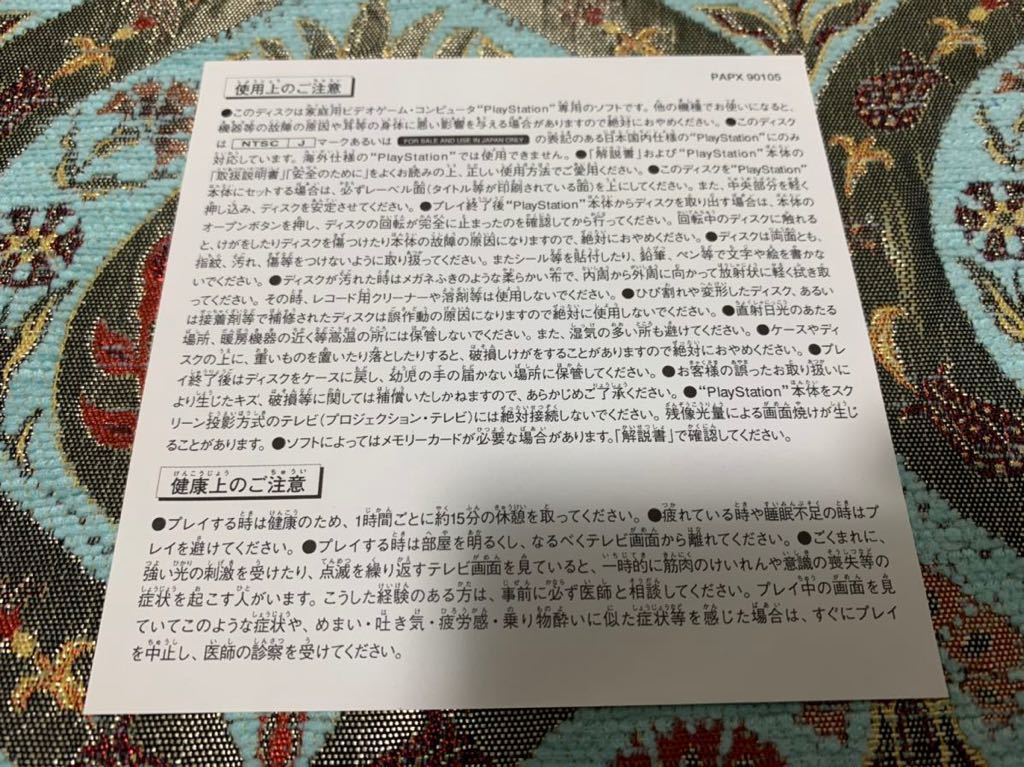 PAPX 90105
使用上のご注意
●このディスクは家庭用ビデオゲーム・コンピュータ“PlayStation”専用のソフトです。他の機種でお使いになると、
機器等の故障の原因や耳等の身体に悪い影響を与える場合がありますので絶対におやめください。●このディスク
は NTSC J マークあるいは FOR SALE AND USE IN JAPAN ONLY の表記のある日本国内仕様の“PlayStation”にのみ
対応しています。海外仕様の“PlayStation”では使用できません。●「解説書」および“PlayStation”本体の
「取扱説明書」「安全のために」をよくお読みの上、正しい使用方法でご愛用ください。●このディスクを“PlayStation”
本体にセットする場合は、必ずレーベル面(タイトル等が印刷されている面)を上にしてください。また、中央部分を軽く
押し込み、ディスクを安定させてください。●プレイ終了後“PlayStation”本体からディスクを取り出す場合は、本体の
オープンボタンを押し、ディスクの回転が完全に止まったのを確認してから行ってください。回転中のディスクに触れる
と、けがをしたりディスクを傷つけたり本体の故障の原因になりますので、絶対におやめください。●ディスクは両面とも、
指紋、汚れ、傷等をつけないように取り扱ってください。またシール等を貼付したり、鉛筆、ペン等で文字や絵を書かな
いでください。●ディスクが汚れた時はメガネふきのような柔らかい布で、内周から外周に向かって放射状に軽く拭き取
ってください。その時、レコード用クリーナーや溶剤等は使用しないでください。●ひび割れや変形したディスク、あるい
は接着剤等で補修されたディスクは誤作動の原因になりますので絶対に使用しないでください。●直射日光のあたる
場所、暖房機器の近く等高温の所には保管しないでください。また、湿気の多い所も避けてください。●ケースやディ
スクの上に、重いものを置いたり落としたりすると、破損しけがをすることがありますので絶対におやめください。●プレ
イ終了後はディスクをケースに戻し、幼児の手の届かない場所に保管してください。●お客様の誤ったお取り扱いに
より生じたキズ、破損等に関しては補償いたしかねますので、あらかじめご了承ください。●“PlayStation”本体をスク
リーン投影方式のテレビ(プロジェクション・テレビ)には絶対接続しないでください。残像光量による画面焼けが生じ
ることがあります。●ソフトによってはメモリーカードが必要な場合があります。「解説書」で確認してください。
健康上のご注意
●プレイする時は健康のため、1時間ごとに約15分の休憩を取ってください。●疲れている時や睡眠不足の時はプ
レイを避けてください。●プレイする時は部屋を明るくし、なるべくテレビ画面から離れてください。●ごくまれに、
強い光の刺激を受けたり、点滅を繰り返すテレビ画面を見ていると、一時的に筋肉のけいれんや意識の喪失等の
症状を起こす人がいます。こうした経験のある方は、事前に必ず医師と相談してください。プレイ中の画面を見
ていてこのような症状や、めまい・吐き気・疲労感・乗り物酔いに似た症状等を感じた場合は、すぐにプレイ
を中止し、医師の診察を受けてください。